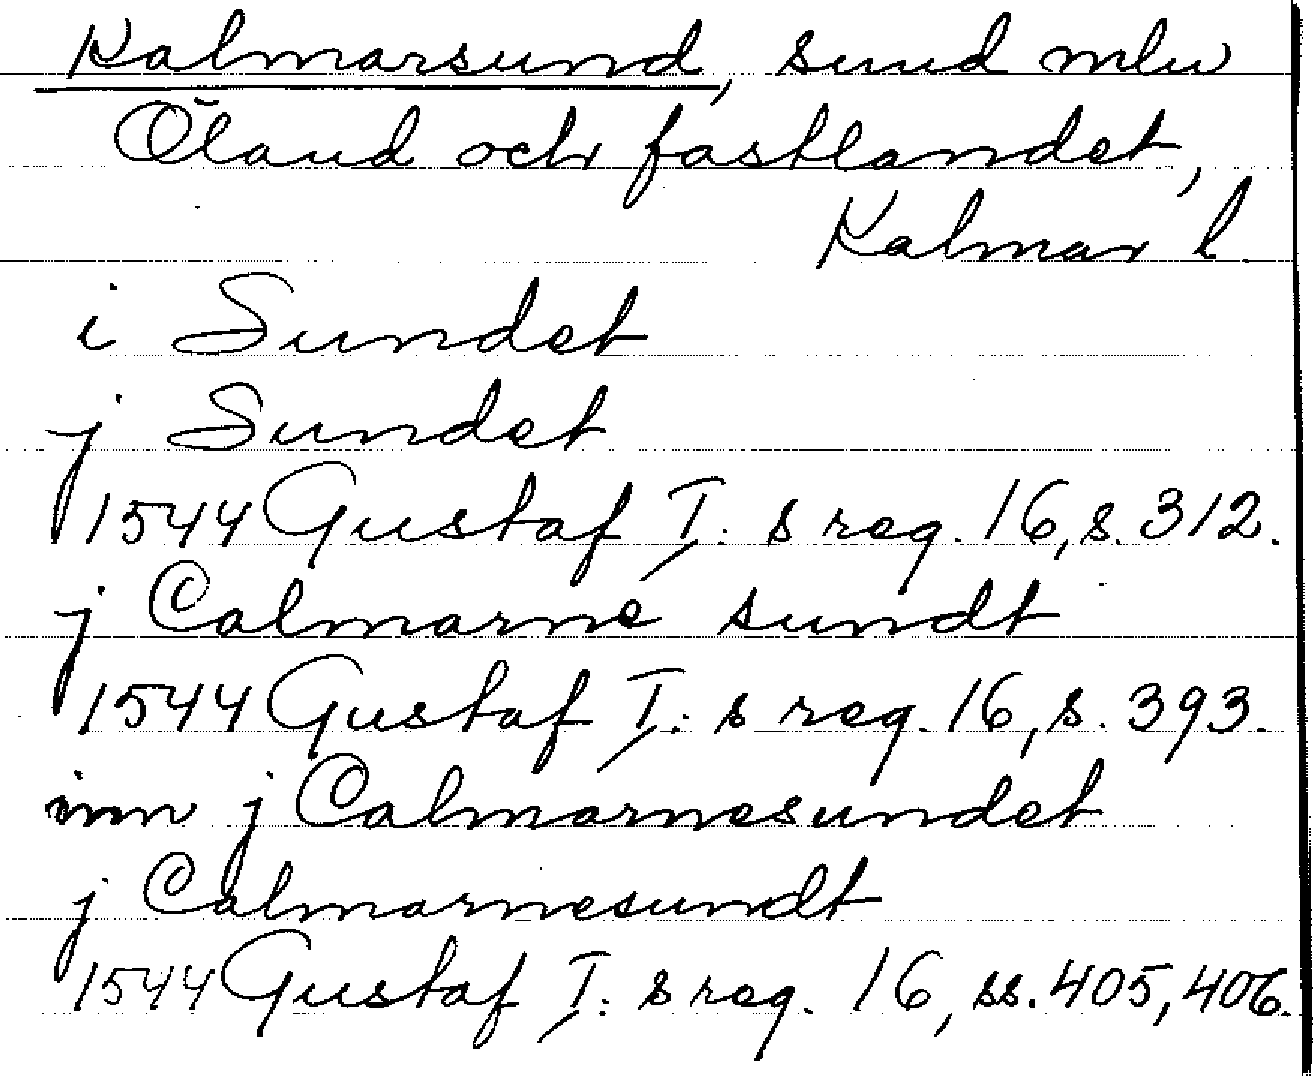 Kalmarsund, sund mlw
Öland och fastlandet,
Kalmar l.
i Sundet
j Sundet
1544 Gustaf I:s reg. 16, s. 312.
j Calmarne sundt
1544 Gustaf I:s reg. 16, s. 393.
inn j Calmarnesundet
j Calmarnesundt
1544 Gustaf I:s reg. 16, ss. 405, 406.